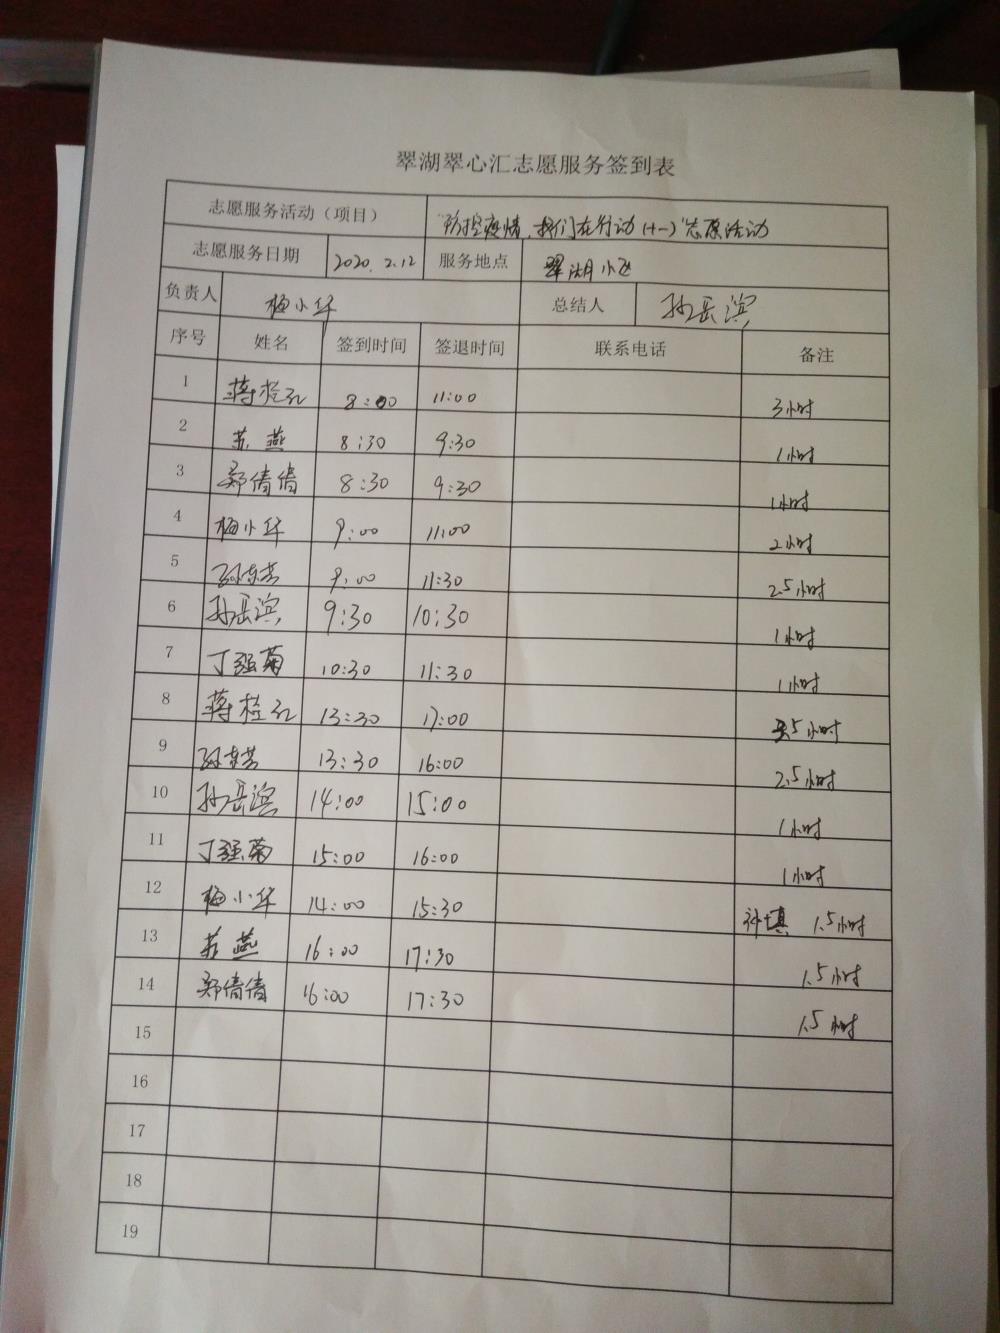 翠湖翠心汇志愿服务签到表
志愿服务活动（项目） "防控疫情，我们在行动（十一）"志愿活动
志愿服务日期 2020.2.12 服务地点 翠湖小区
负责人 梅小华 总结人 孙岳滨
序号 姓名 签到时间 签退时间 联系电话 备注
1 蒋桂红 8:00 11:00 3小时
2 苏燕 8:30 9:30 1小时
3 郑倩倩 8:30 9:30 1小时
4 梅小华 9:00 11:00 2小时
5 9:00 11:30 2.5小时
6 孙岳滨 9:30 10:30 1小时
7 丁强菊 10:30 11:30 1小时
8 蒋桂红 13:30 17:00 3.5小时
9 13:30 16:00 2.5小时
10 孙岳滨 14:00 15:00 1小时
11 丁强菊 15:00 16:00 1小时
12 梅小华 14:00 15:30 补填 1.5小时
13 苏燕 16:00 17:30 1.5小时
14 郑倩倩 16:00 17:30 1.5小时
15
16
17
18
19